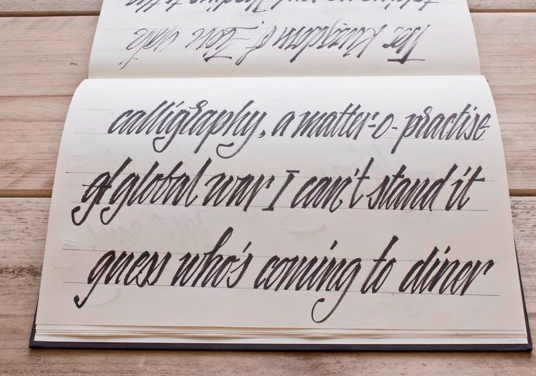 The Kingdom of
calligraphy, a matter-o-practise
of global war I can't stand it
guess who's coming to diner